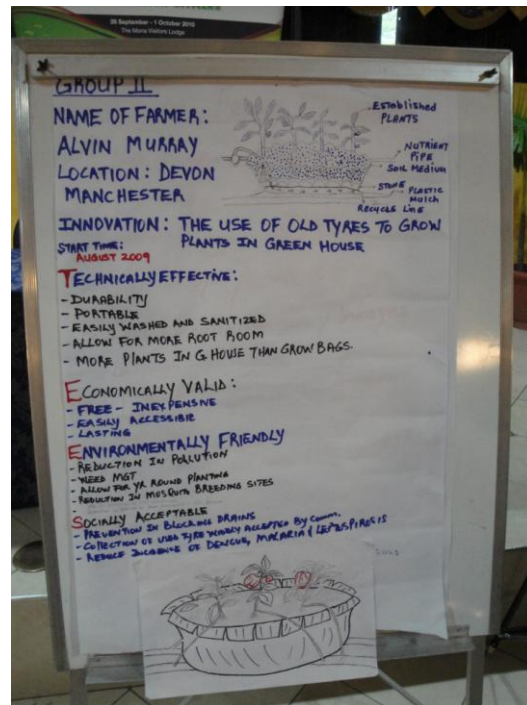 28 September - 1 October 2010
The Mona Visitors Lodge
GROUP II
NAME OF FARMER:
ALVIN MURRAY
LOCATION: DEVON
MANCHESTER
Established
PLANTS
NUTRIENT
PIPE
SOIL MEDIUM
STONE
PLASTIC
MULCH
RECYCLE LINE
INNOVATION: THE USE OF OLD TYRES TO GROW
PLANTS IN GREEN HOUSE
START TIME:
AUGUST 2009
TECHNICALLY EFFECTIVE:
- DURABILITY
- PORTABLE
- EASILY WASHED AND SANITIZED
- ALLOW FOR MORE ROOT ROOM
- MORE PLANTS IN G HOUSE THAN GROW BAGS.
ECONOMICALLY VALID:
- FREE - INEXPENSIVE
- EASILY ACCESSIBLE
- LASTING
ENVIRONMENTALLY FRIENDLY
- REDUCTION IN POLLUTION
- WEED MGT
- ALLOW FOR YR ROUND PLANTING
- REDUCTION IN MOSQUITO BREEDING SITES
SOCIALLY ACCEPTABLE
- PREVENTION IN BLOCKING DRAINS
- COLLECTION OF USED TYRE WIDELY ACCEPTED BY COMM.
- REDUCE INCIDENCE OF DENGUE, MALARIA & LEPTOSPIROSIS